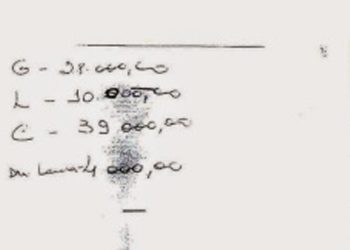 G - 28.000,00
L - 10.000,00
C - 39.000,00
Du Laura-4.000,00